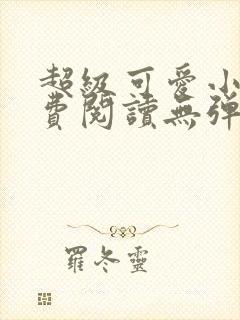 超級可愛小
費閱讀無彈
羅冬靈